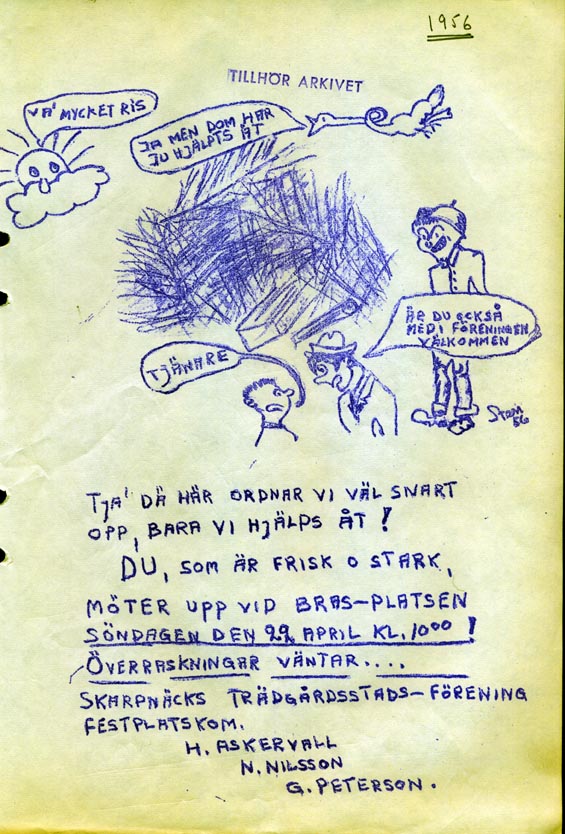 1956
TILLHÖR ARKIVET
VA' MYCKET RIS
JA MEN DOM HAR
JU HJÄLPTS ÅT
ÄR DU OCKSÅ
MED I FÖRENINGEN
VÄLKOMMEN
TJÄNARE
Stam
56
TJA' DÄ HÄR ORDNAR VI VÄL SNART
OPP, BARA VI HJÄLPS ÅT!
DU, SOM ÄR FRISK O STARK,
MÖTER UPP VID BRAS-PLATSEN
SÖNDAGEN DEN 22 APRIL KL. 10ºº !
ÖVERRASKNINGAR VÄNTAR....
SKARPNÄCKS TRÄDGÅRDSSTADS-FÖRENING
FESTPLATSKOM.
H. ASKERVALL
N. NILSSON
G. PETERSON.